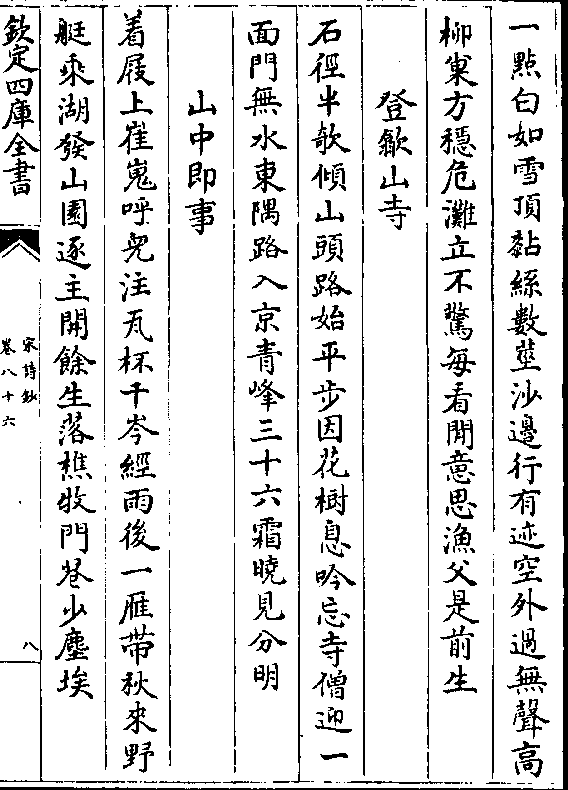 一點白如雪頂黏絲數莖沙邊行有迹空外過無聲高
柳巢方穩危灘立不驚每看閒意思漁父是前生
登歙山寺
石徑半欹傾山頭路始平步因花樹息吟忘寺僧迎一
面門無水東隅路入京青峰三十六霜曉見分明
山中即事
着屐上崔嵬呼兒注瓦杯千岑經雨後一雁帶秋來野
艇乘湖發山園逐主開餘生落樵牧門巷少塵埃
欽定四庫全書
宋詩鈔
卷八十六
八